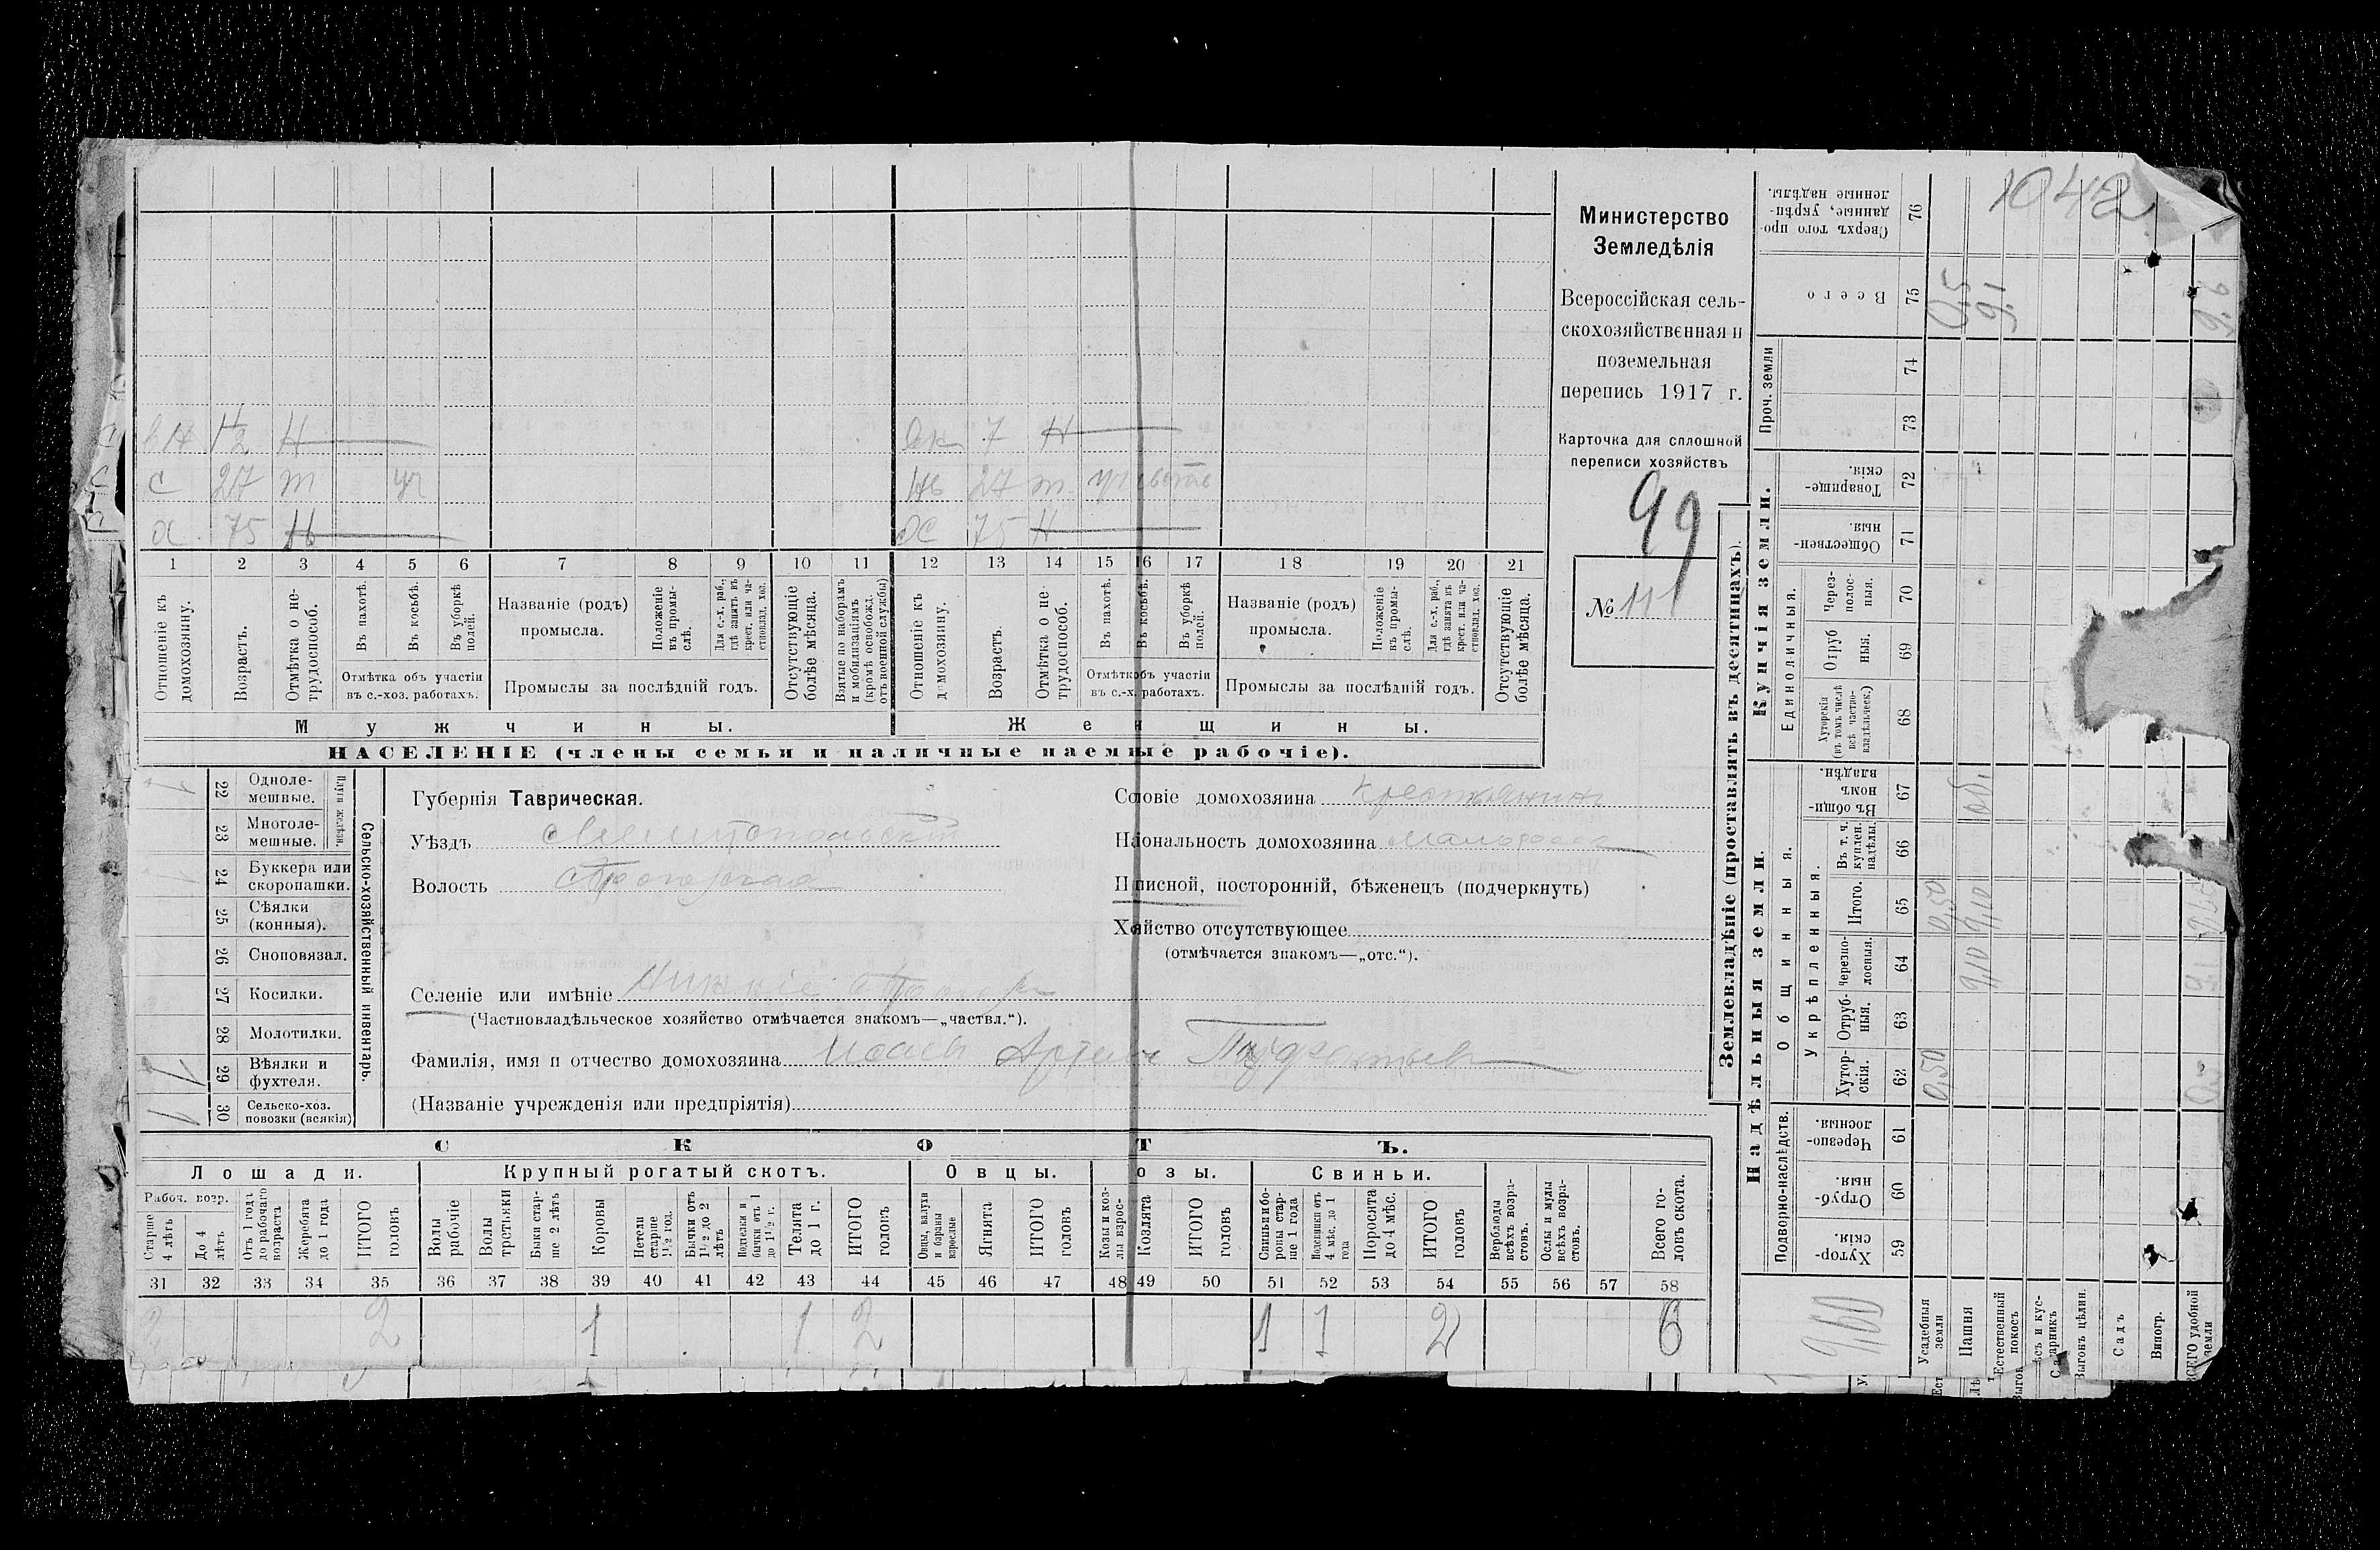 Министерство
Земледѣлія
Всероссійская сель-
скохозяйственная и
поземельная
перепись 1917 г.
Карточка для сплошной
переписи хозяйствъ
99
№ 111
1042
вн 1/2 н
с 27 т уч
а 75 н
7 н
27 т
75 н
1 2 3 4 5 6 7 8 9 10 11 12 13 14 15 16 17 18 19 20 21
Отношеніе къ домохозяину.
Возрастъ.
Отмѣтка о не-трудоспособ.
Въ пахотѣ.
Въ косьбѣ.
Въ уборкѣ полей.
Отмѣтка объ участіи
въ с.-хоз. работахъ.
Названіе (родъ)
промысла.
Положеніе въ промы-слѣ.
Для с.-х. раб., гдѣ занятъ въ крест. или ча-стновлад. хоз.
Промыслы за послѣдній годъ.
Отсутствующіе болѣе мѣсяца.
Взятые по наборамъ и мобилизаціямъ (кромѣ освобожд. отъ военной службы)
Отношеніе къ домохозяину.
Возрастъ.
Отмѣтка о не-трудоспособ.
Въ пахотѣ.
Въ косьбѣ.
Въ уборкѣ полей.
Отмѣтк объ участіи
въ с.-х. работахъ.
Названіе (родъ)
промысла.
Положеніе въ промы-слѣ.
Для с.-х. раб., гдѣ занята въ крест. или ча-стновлад. хоз.
Промыслы за послѣдній годъ.
Отсутствующіе болѣе мѣсяца.
Мужчины.
Женщины.
НАСЕЛЕНІЕ (члены семьи и наличные наемные рабочіе).
Сельско-хозяйственный инвентарь.
Плуги желѣзн.
22 Одноле-мешные.
23 Многоле-мешные.
24 Буккера или скоропашки.
25 Сѣялки (конныя).
26 Сноповязал.
27 Косилки.
28 Молотилки.
1 29 Вѣялки и фухтеля.
1 30 Сельско-хоз. повозки (всякія)
Губернія Таврическая.
Уѣздъ Мелитопольскій
Волость
Селеніе или имѣніе
(Частновладѣльческое хозяйство отмѣчается знакомъ—„частвл.“).
Фамилія, имя и отчество домохозяина Исаевъ
(Названіе учрежденія или предпріятія)
Сословіе домохозяина Крестьянинъ
Наіональность домохозяина малоросс
Пписной, посторонній, бѣженецъ (подчеркнуть)
Хяйство отсутствующее
(отмѣчается знакомъ—„отс.“).
СКОТЪ.
Лошади.
Крупный рогатый скотъ.
Овцы.
озы.
Свиньи.
Рабоч. возр.
Старше 4 лѣтъ
До 4 лѣтъ
Отъ 1 года до рабочаго возраста
Жеребята до 1 года
ИТОГО головъ
Волы рабочіе
Волы третьяки
Быки стар-ше 2 лѣтъ
Коровы
Нетели старше 1½ год.
Бычки отъ 1½ до 2 лѣтъ
Подтелки и бычки отъ 1 до 1½ г.
Телята до 1 г.
ИТОГО головъ
Овцы, валухи и бараны взрослые
Ягнята
ИТОГО головъ
Козы и коз-лы взрос-
Козлята
ИТОГО головъ
Свиньи и бо-ровы стар-ше 1 года
Подсвинки отъ 4 мѣс. до 1 года
Поросята до 4 мѣс.
ИТОГО головъ
Верблюды всѣхъ возра-стовъ.
Ослы и мулы всѣхъ возра-стовъ.
Всего го-ловъ скота.
31 32 33 34 35 36 37 38 39 40 41 42 43 44 45 46 47 48 49 50 51 52 53 54 55 56 57 58
2 2 1 1 2 1 1 2 6
Землевладѣніе (проставлять въ десятинахъ).
Надѣльныя земли.
Купчія земли.
Проч. земли
Подворно-наслѣдств.
Общинныя.
Укрѣпленныя.
Единоличныя.
Хутор-скія. 59
Отруб-ныя. 60
Черезпо-лосныя. 61
Хутор-скія. 62
Отруб-ныя. 63
Черезпо-лосныя. 64
Итого. 65
Въ т. ч. куплен. надѣлы. 66
Въ общи-номъ владѣн. 67
Хуторскія (въ томъ числѣ всѣ частно-владѣльческ.) 68
Отруб ныя. 69
Через-полос-ныя. 70
Обществен-ныя. 71
Товарище-скія. 72
73
74
Всего 75
Сверхъ того про-данные, укрѣп-ленные надѣлы. 76
9,60
Усадебныя земли 0,50 0,50 0,5
Пашня 9,10 9,10 об. 9,1
Естественный покосъ
Выгонъ цѣлин.
Садъ
Виногр.
ВСЕГО удобной земли 0,5 9,1 9,6